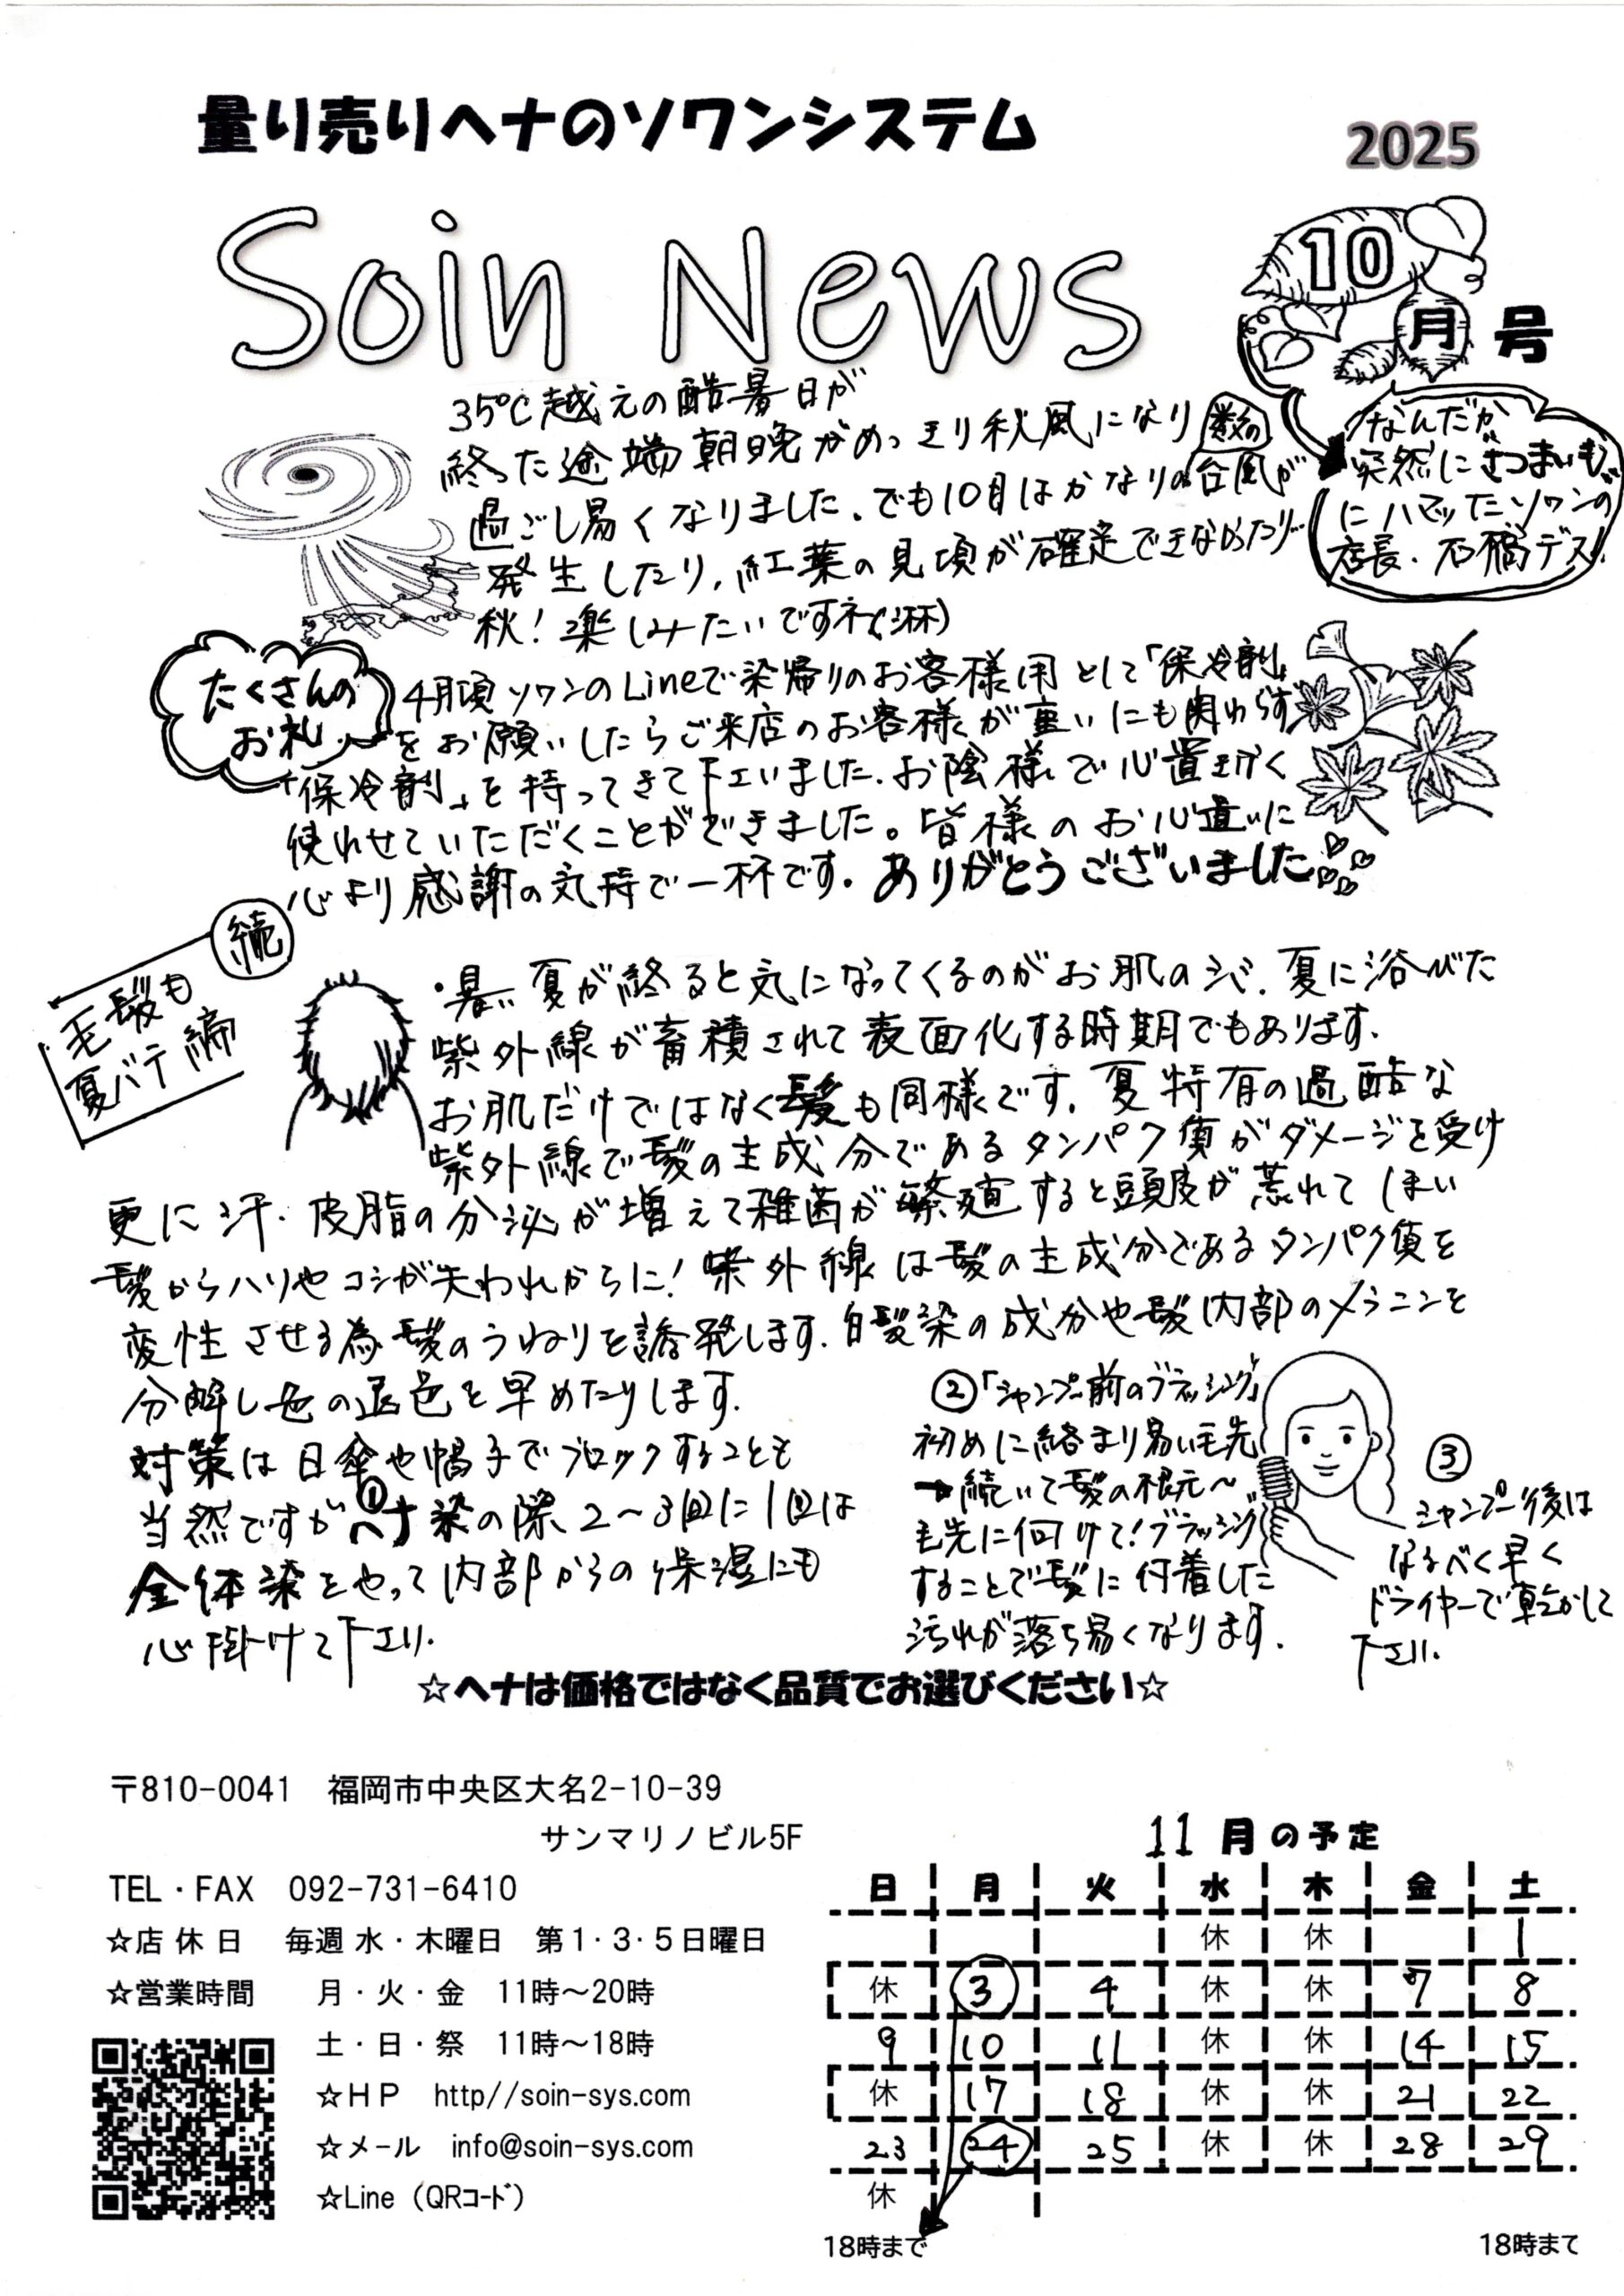 量り売りヘナのソワンシステム
2025
Soin News
10
月号
35℃越えの酷暑日が
終った途端朝晩がめっきり秋風になり
過ごし易くなりました。でも10月はかなりの数の台風が
発生したり、紅葉の見頃が確定できなかったり…
秋!楽しみたいですネ(淋)
なんだか
突然にさつまいも
にハマッたソワンの
店長・石橋デス!
たくさんの
お礼
4月頃ソワンのLineで染帰りのお客様用として「保冷剤」
をお願いしたらご来店のお客様が重いにも関わらず
「保冷剤」を持ってきて下エいました。お陰様で心置きなく
使わせていただくことができました。皆様のお心遣いに
心より感謝の気持で一杯です。ありがとうございました
続
毛髪も
夏バテ編
・暑い夏が終ると気になってくるのがお肌のシミ。夏に浴びた
紫外線が蓄積されて表面化する時期でもあります。
お肌だけではなく髪も同様です。夏特有の過酷な
紫外線で髪の主成分であるタンパク質がダメージを受け
更に汗・皮脂の分泌が増えて雑菌が繁殖すると頭皮が荒れてしまい
髪からハリやコシが失われがちに!紫外線は髪の主成分であるタンパク質を
変性させる為髪のうねりを誘発します。白髪染の成分や髪内部のメラニンを
分解し色の退色を早めたりします。
対策は日傘や帽子でブロックすることも
当然ですが①ヘナ染の際2〜3回に1回は
全体染をやって内部からの保湿にも
心掛けて下エい。
②「シャンプー前のブラッシング」
初めに絡まり易い毛先
→続いて髪の根元〜
毛先に向けて!ブラッシング
することで髪に付着した
汚れが落ち易くなります。
③
シャンプー後は
なるべく早く
ドライヤーで乾かして
下エい。
☆ヘナは価格ではなく品質でお選びください☆
〒810-0041 福岡市中央区大名2-10-39
サンマリノビル5F
TEL・FAX 092-731-6410
☆店休日 毎週 水・木曜日 第1・3・5日曜日
☆営業時間 月・火・金 11時〜20時
土・日・祭 11時〜18時
☆HP http//soin-sys.com
☆メール info@soin-sys.com
☆Line（QRコード）
11月の予定
日 月 火 水 木 金 土
休 休 1
休 3 4 休 休 7 8
9 10 11 休 休 14 15
休 17 18 休 休 21 22
23 24 25 休 休 28 29
休
18時まで
18時まで